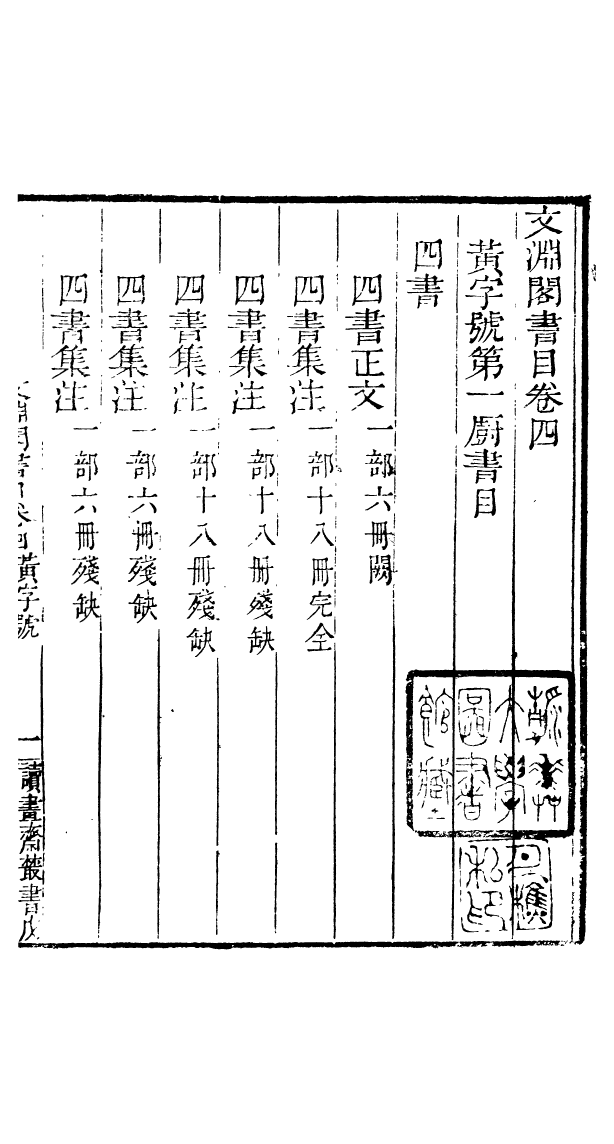 文淵閣書目卷四
黃字號第一厨書目
四書
四書正文一部六冊闕
四書集注一部十八冊完全
四書集注一部十八冊殘缺
四書集注一部十八冊殘缺
四書集注一部六冊殘缺
四書集注一部六冊殘缺
文淵閣書目卷四黃字號
一
讀畫齋叢書戊
燕京大學圖書館藏